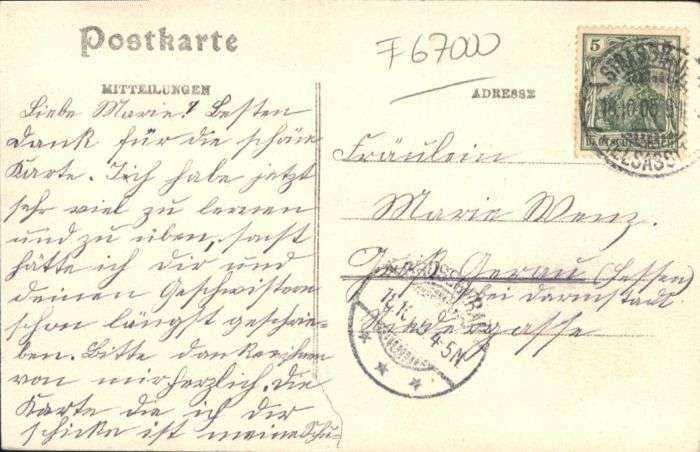 Postkarte
F 67000
MITTEILUNGEN
ADRESSE
5
STRASSBURG
18.10.05
ELSASS
Liebe Marie! Besten
Dank für die schöne
Karte. Ich habe jetzt
sehr viel zu lernen
und zu üben, sonst
hätte ich Dir und
deinen Geschwistern
schon längst geschrie-
ben. Bitte danke ihnen
von mir herzlich. Die
Karte die ich dir
schicke ist meine Schu-
Fräulein
Marie Wenz.
Groß Gerau (Hessen)
bei Darmstadt
4-5N